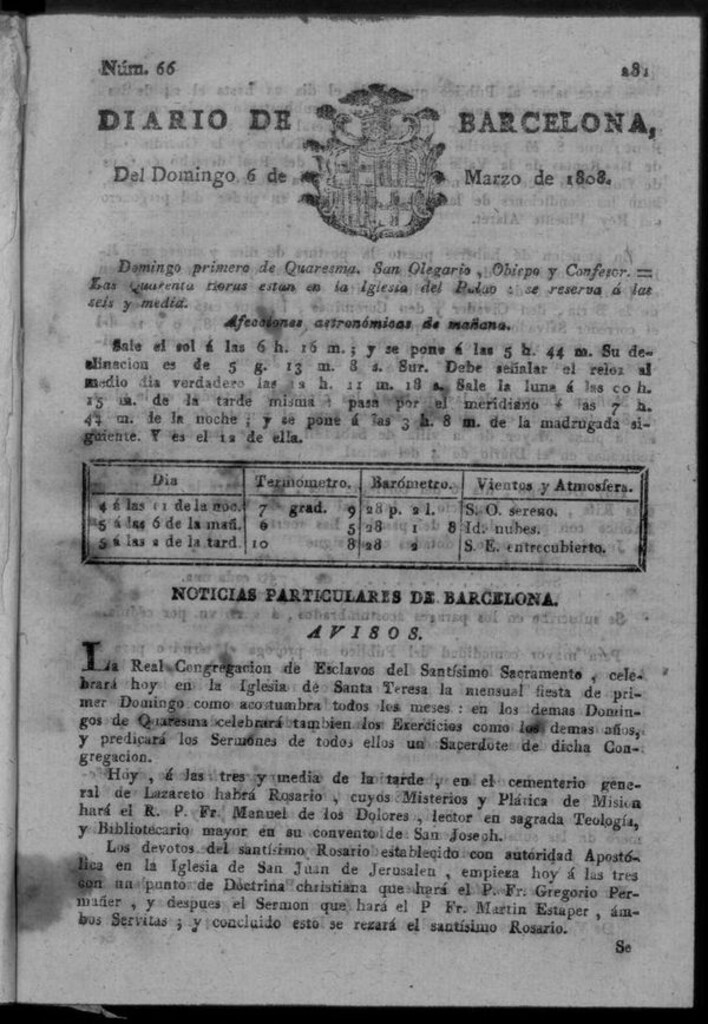 Núm. 66 281
DIARIO DE BARCELONA,
Del Domingo 6 de Marzo de 1808.
Domingo primero de Quaresma. San Olegario, Obispo y Confesor. =
Las Quarenta Horas estan en la Iglesia del Palao : se reserva á las
seis y media.
Afecciones astronómicas de mañana.
Sale el sol á las 6 h. 16 m.; y se pone á las 5 h. 44 m. Su de-
clinacion es de 5 g. 13 m. 8 s. Sur. Debe señalar el relox al
medio dia verdadero las 12 h. 11 m. 18 s. Sale la luna á las 00 h.
15 m. de la tarde misma : pasa por el meridiano á las 7 h.
47 m. de la noche ; y se pone á las 3 h. 8 m. de la madrugada si-
guiente. Y es el 12 de ella.
Dia Termómetro. Barómetro. Vientos y Atmosfera.
4 á las 11 de la noc. 7 grad. 9 28 p. 2 l. S. O. sereno.
5 á las 6 de la mañ. 6 5 28 1 8 Id. nubes.
5 á las 2 de la tard. 10 8 28 2 S. E. entrecubierto.
NOTICIAS PARTICULARES DE BARCELONA.
AVISOS.
La Real Congregacion de Esclavos del Santísimo Sacramento, cele-
brará hoy en la Iglesia de Santa Teresa la mensual fiesta de pri-
mer Domingo como acostumbra todos los meses : en los demas Domin-
gos de Quaresma celebrará tambien los Exercicios como los demas años,
y predicará los Sermones de todos ellos un Sacerdote de dicha Con-
gregacion.
Hoy, á las tres y media de la tarde, en el cementerio gene-
ral de Lazareto habrá Rosario, cuyos Misterios y Plática de Mision
hará el R. P. Fr. Manuel de los Dolores, lector en sagrada Teología,
y Bibliotecario mayor en su convento de San Joseph.
Los devotos del santísimo Rosario establecido con autoridad Apostó-
lica en la Iglesia de San Juan de Jerusalen, empieza hoy á las tres
con un punto de Doctrina christiana que hará el P. Fr. Gregorio Per-
mañer, y despues el Sermon que hará el P Fr. Martin Estaper, ám-
bos Servitas ; y concluido esto se rezará el santísimo Rosario.
Se